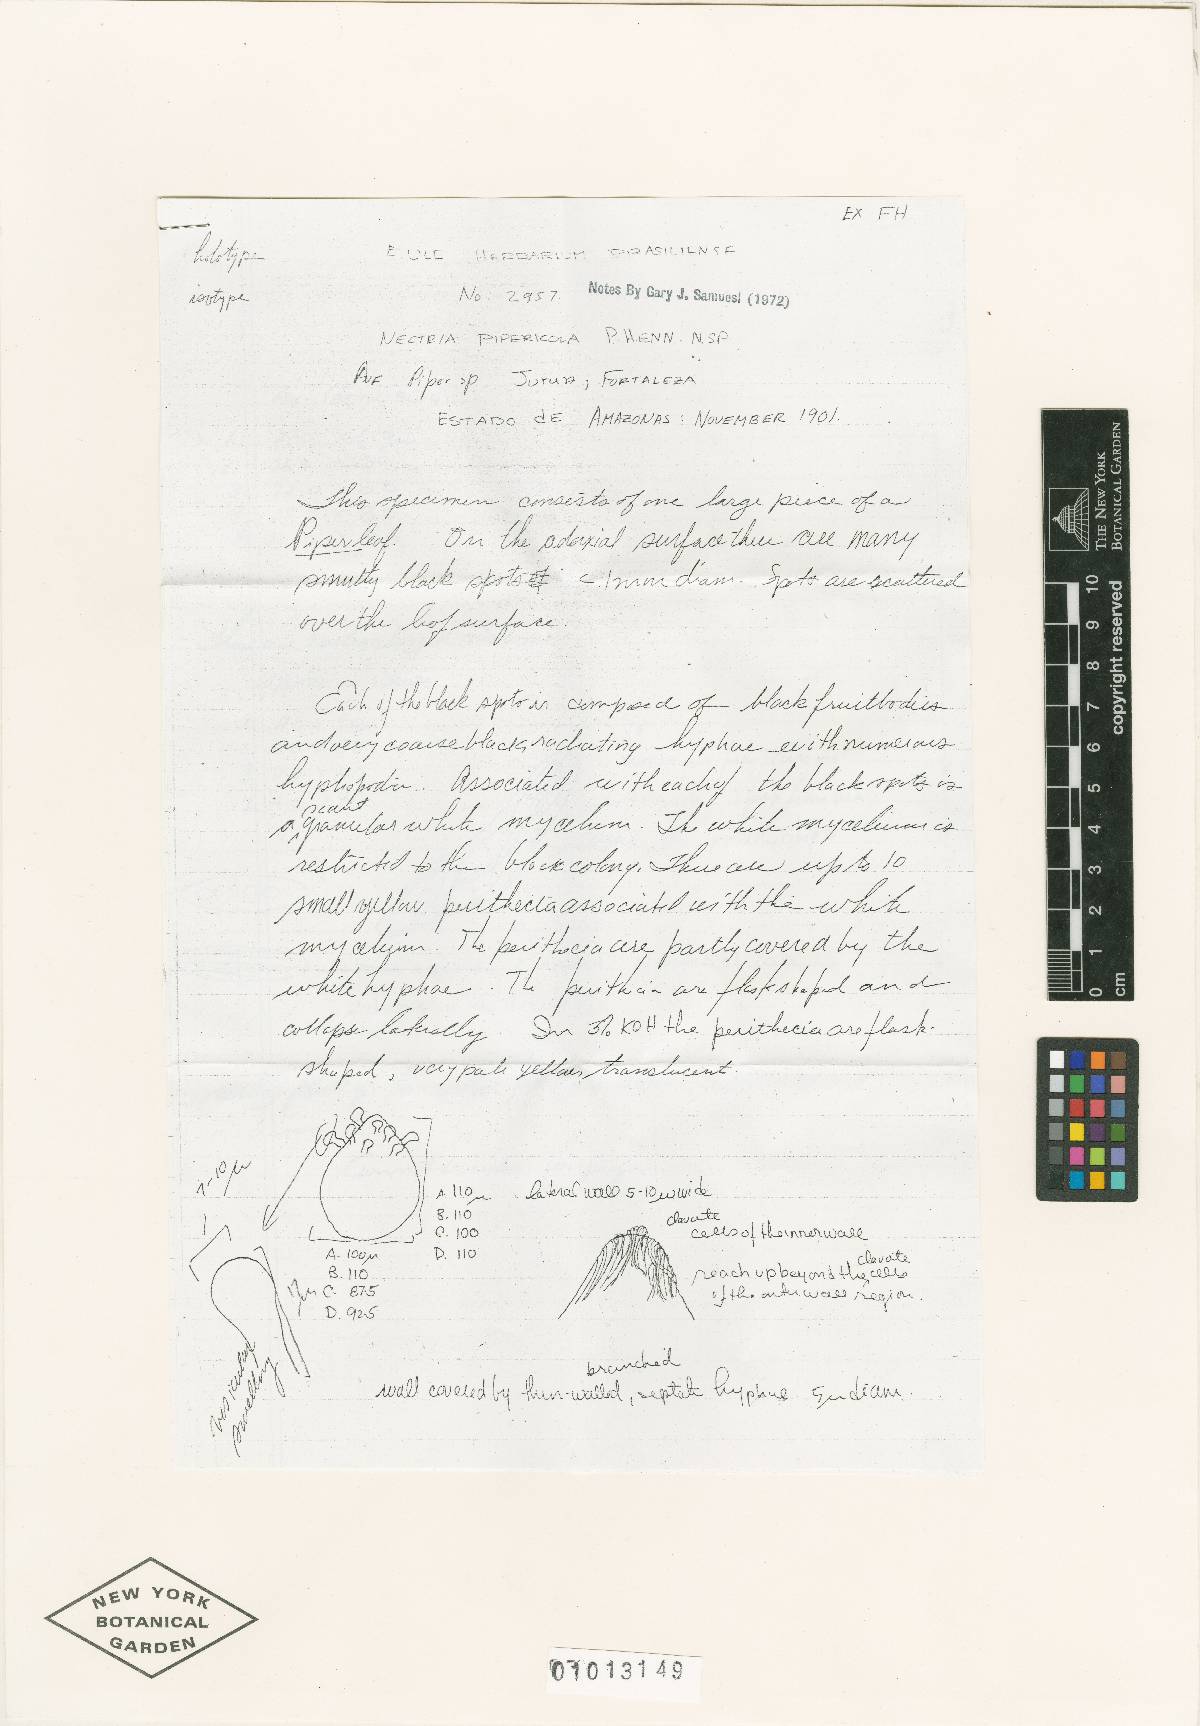 EX FH
holotype
E. ULE HERBARIUM BRASILIENSE
isotype
No. 2957.
Notes By Gary J. Samuesl (1972)
NECTRIA PIPERICOLA P. HENN. N.SP.
AUF Piper sp JURUA, FORTALEZA
ESTADO de AMAZONAS: NOVEMBER 1901.
This specimen consists of one large piece of a
Piper leaf. On the adaxial surface there are many
smutty black spots < 1mm diam. Spots are scattered
over the leaf surface.
Each of the black spots is composed of black fruitbodies
and very coarse black, radiating hyphae with numerous
hyphopodia. Associated with each of the black spots is
scant
a granular white mycelium. The white mycelium is
restricted to the black colony. There are up to 10
small yellow perithecia associated with the white
mycelium. The perithecia are partly covered by the
white hyphae. The perithecia are flask shaped and
collapse laterally. In 3% KOH the perithecia are flask-
shaped, very pale yellow, translucent.
7-10 µ
A. 110 µ
B. 110
C. 100
D. 110
A. 100µ
B. 110
C. 87.5
D. 92.5
vesicular
swelling
lateral wall 5-10 µ wide
clavate
cells of the inner wall
clavate
reach up beyond the cells
of the outer wall region.
branched
wall covered by thin-walled, septate hyphae 5µ diam.
THE NEW YORK
BOTANICAL GARDEN
copyright reserved
10
9
8
7
6
5
4
3
2
1
0
cm
NEW YORK
BOTANICAL
GARDEN
01013149